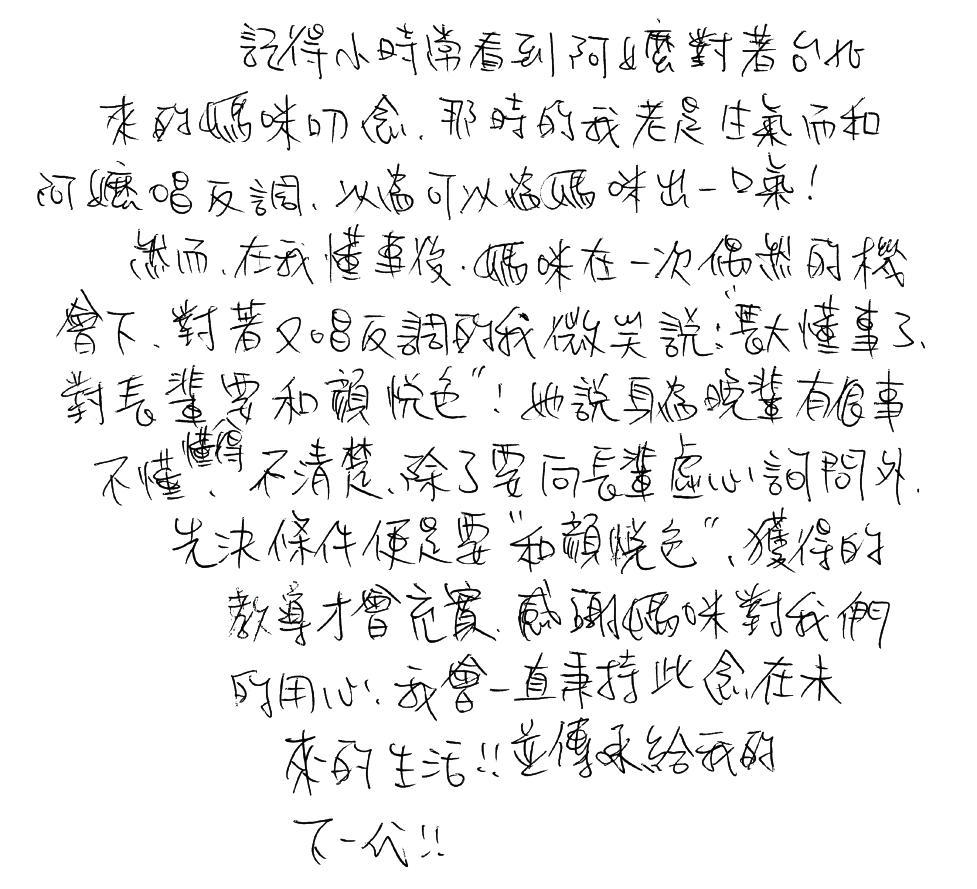 記得小時常看到阿嬤對著台北
來的媽咪叨念、那時的我老是生氣而和
阿嬤唱反調、以為可以為媽咪出一口氣！
然而、在我懂事後、媽咪在一次偶然的機
會下、對著又唱反調的我微笑說："長大懂事了、
對長輩要和顏悅色"！她說身為晚輩有很事
不懂、懂得不清楚、除了要向長輩虛心詢問外、
先決條件便是要"和顏悅色"、獲得的
教導才會充實、感謝媽咪對我們
的用心、我會一直秉持此念在未
來的生活！！並傳承給我的
下一代！！